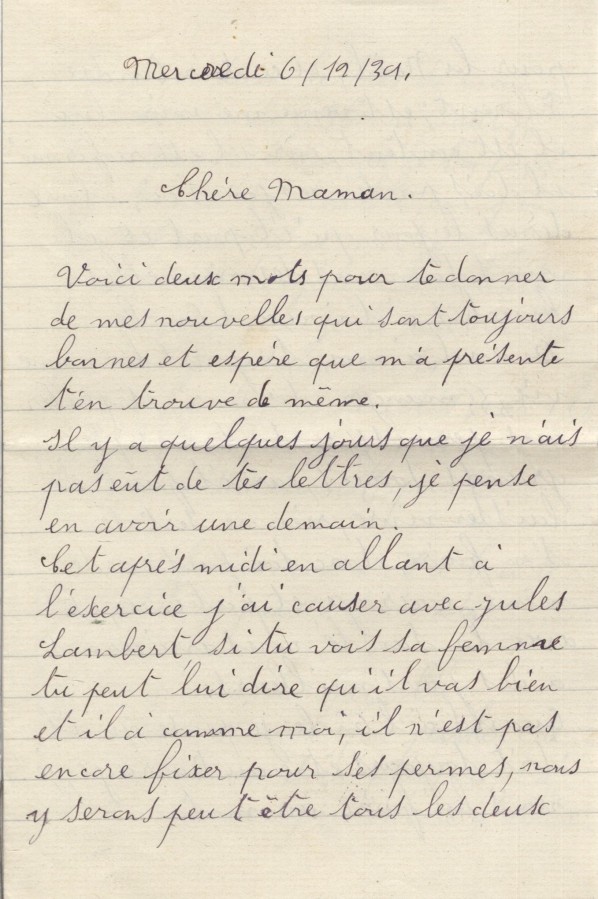 Mercredi 6/12/39.
Chère Maman.
Voici deux mots pour te donner
de mes nouvelles qui sont toujours
bonnes et espére que m'a présente
t'én trouve de même.
Il y a quelques jours que jé n'ais
pas eût de tés lettres, jé pense
en avoir une demain.
Cet aprés midi en allant a
l'éxercice j'ai causer avec Jules
Lambert, si tu vois sa femme
tu peut lui dire qu'il vas bien
et il a comme moi, il n'est pas
encore fixer pour ses permes, nous
y serons peut être tous les deux